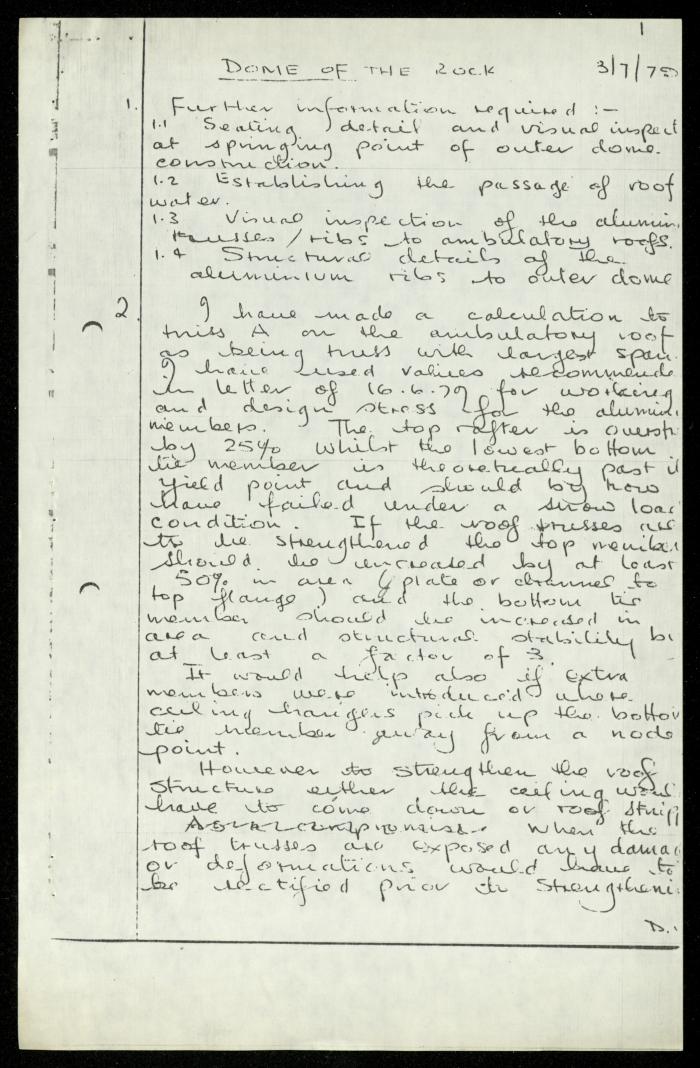 1
DOME OF THE ROCK 3/7/79
1. Further information required :-
1.1 Seating detail and visual inspect
at springing point of outer dome
construction.
1.2 Establishing the passage of roof
water.
1.3 Visual inspection of the alumin
trusses/ribs to ambulatory roofs.
1.4 Structural details of the
aluminium ribs to outer dome
2. I have made a calculation to
truss A on the ambulatory roof
as being truss with largest span.
I have used values recommende
in letter of 16.6.79 for working
and design stress for the alumin
members. The top rafter is overst
by 25% whilst the lowest bottom
tie member is theoretically past it
yield point and should by now
have failed under a snow load
condition. If the roof trusses are
to be strengthened the top member
should be increased by at least
50% in area (plate or channel to
top flange) and the bottom tie
member should be increased in
area and structural stability by
at least a factor of 3.
It would help also if extra
members were introduced where
ceiling hangers pick up the bottom
tie member away from a node
point.
However to strengthen the roof
structure either the ceiling woul
have to come down or roof stripp
As a compromise. When the
roof trusses are exposed any damag
or deformations would have to
be rectified prior to strengtheni
D.